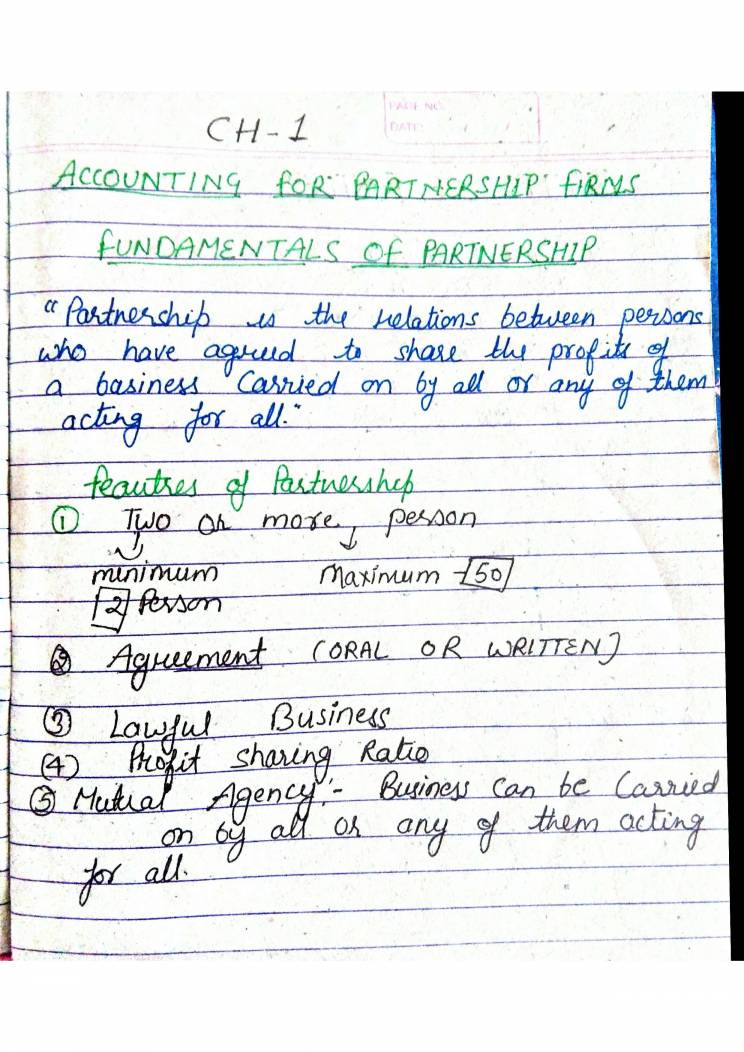 PAGE NO.
DATE:
CH-1
ACCOUNTING FOR PARTNERSHIP FIRMS
FUNDAMENTALS OF PARTNERSHIP
"Partnership is the relations between persons
who have agreed to share the profits of
a basiness Carried on by all or any of them
acting for all."
feautres of Partnership
① Two or more person
minimum Maximum - 50
2 Person
② Agreement (ORAL OR WRITTEN)
③ Lawful Business
(4) Profit sharing Ratio
⑤ Mutual Agency:- Business can be Carried
on by all or any of them acting
for all.